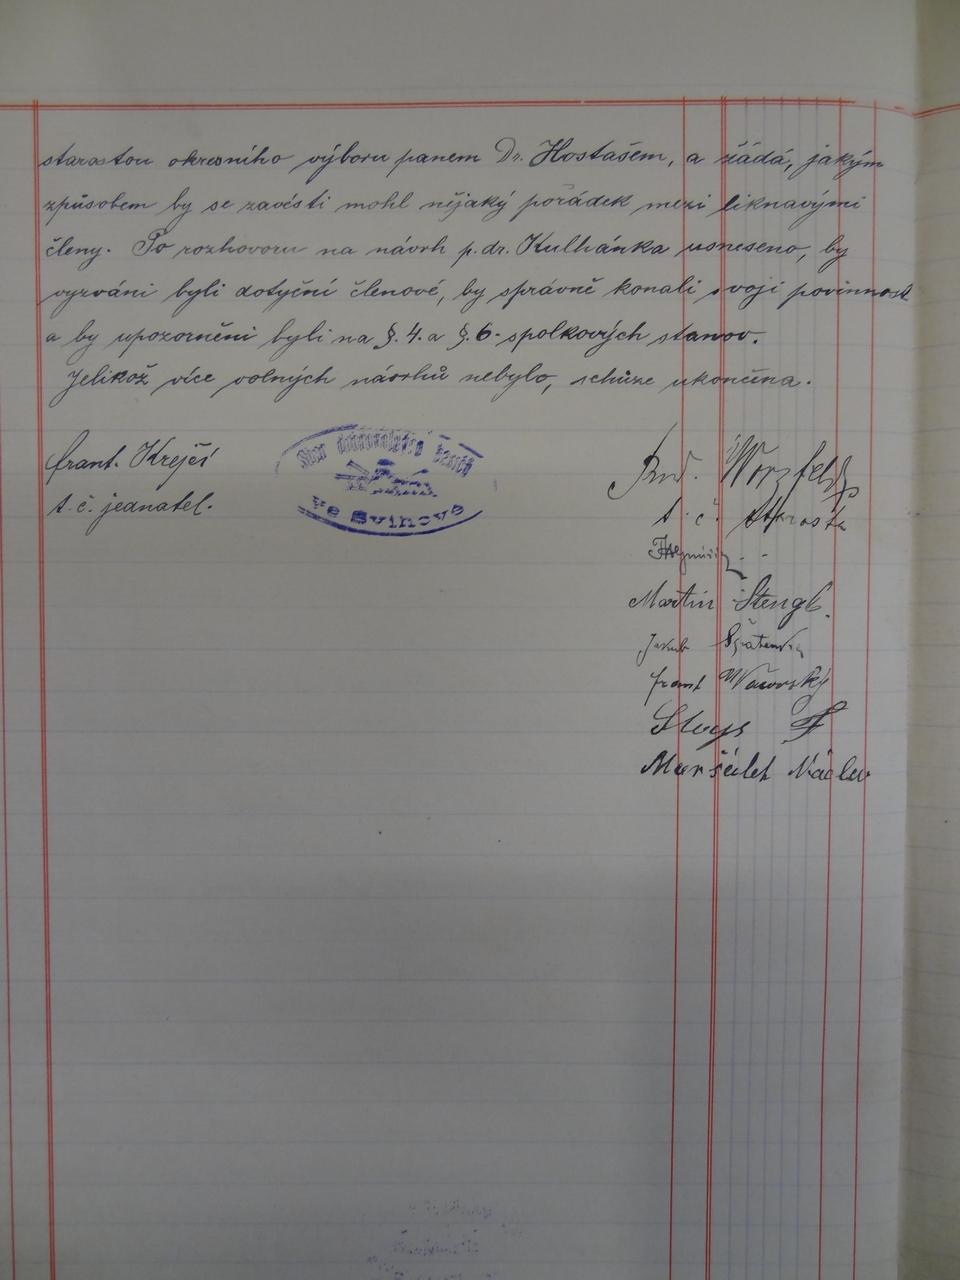 starostou okresního výboru panem Dr. Hostašem, a žádá, jakým
způsobem by se zavésti mohl nějaký pořádek mezi liknavými
členy. Po rozhovoru na návrh p. dr. Kulhánka usneseno, by
vyzváni byli dotyční členové, by správně konali svoji povinnost
a by upozorněni byli na §. 4. a §. 6. spolkových stanov.
Jelikož více volných návrhů nebylo, schůze ukončena.
frant. Krejčí
t. č. jednatel.
Sbor dobrovolných hasičů
ve Švihově
Rud. Worzfeld
t. č. starosta
Martin Štengl.
Jakub
frant Waworský
Sloys F
Maršálek Václav